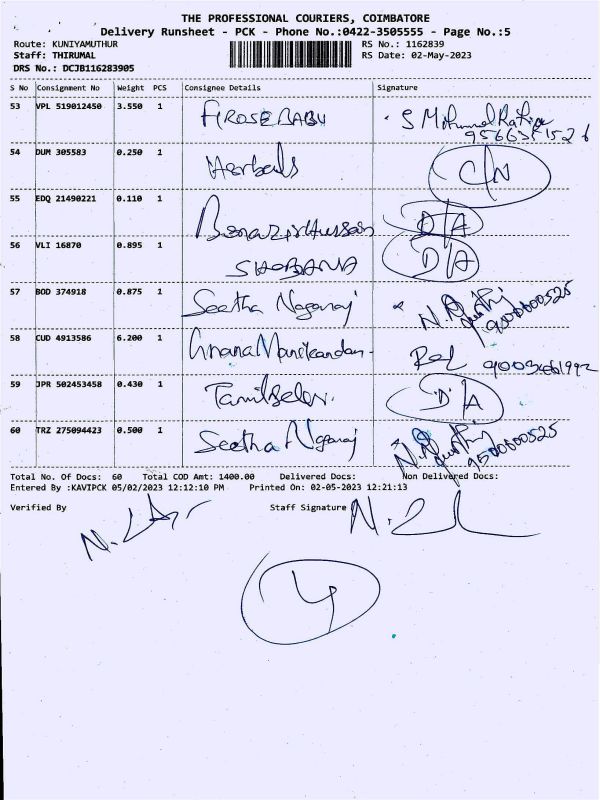 THE PROFESSIONAL COURIERS, COIMBATORE
Delivery Runsheet - PCK - Phone No.:0422-3505555 - Page No.:5
Route: KUNIYAMUTHUR RS No.: 1162839
Staff: THIRUMAL RS Date: 02-May-2023
DRS No.: DCJB116283905
S No Consignment No Weight PCS Consignee Details Signature
53 VPL 519012450 3.550 1 FIROSE BABU S
54 DUM 305583 0.250 1 Herbals C/N
55 EDQ 21490221 0.110 1 D/A
56 VLI 16870 0.895 1 SHOBANA D/A
57 BOD 374918 0.875 1 Seetha Nagaraj 9500600525
58 CUD 4913586 6.200 1 Gnana Manikandan
59 JPR 502453458 0.430 1 Tamilselvi D/A
60 TRZ 275094423 0.500 1 Seetha Nagaraj 9500600525
Total No. Of Docs: 60 Total COD Amt: 1400.00 Delivered Docs: Non Delivered Docs:
Entered By :KAVIPCK 05/02/2023 12:12:10 PM Printed On: 02-05-2023 12:21:13
Verified By Staff Signature
4